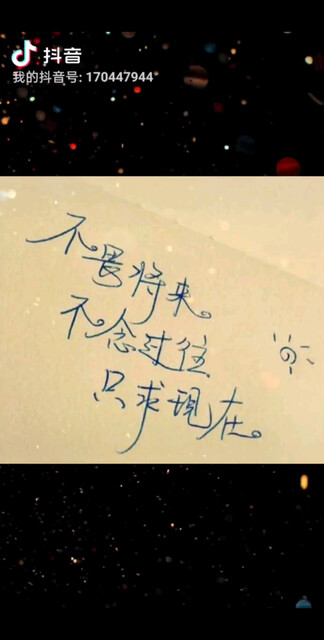 抖音
我的抖音号: 170447944
不畏将来。
不念过往
只求现在。